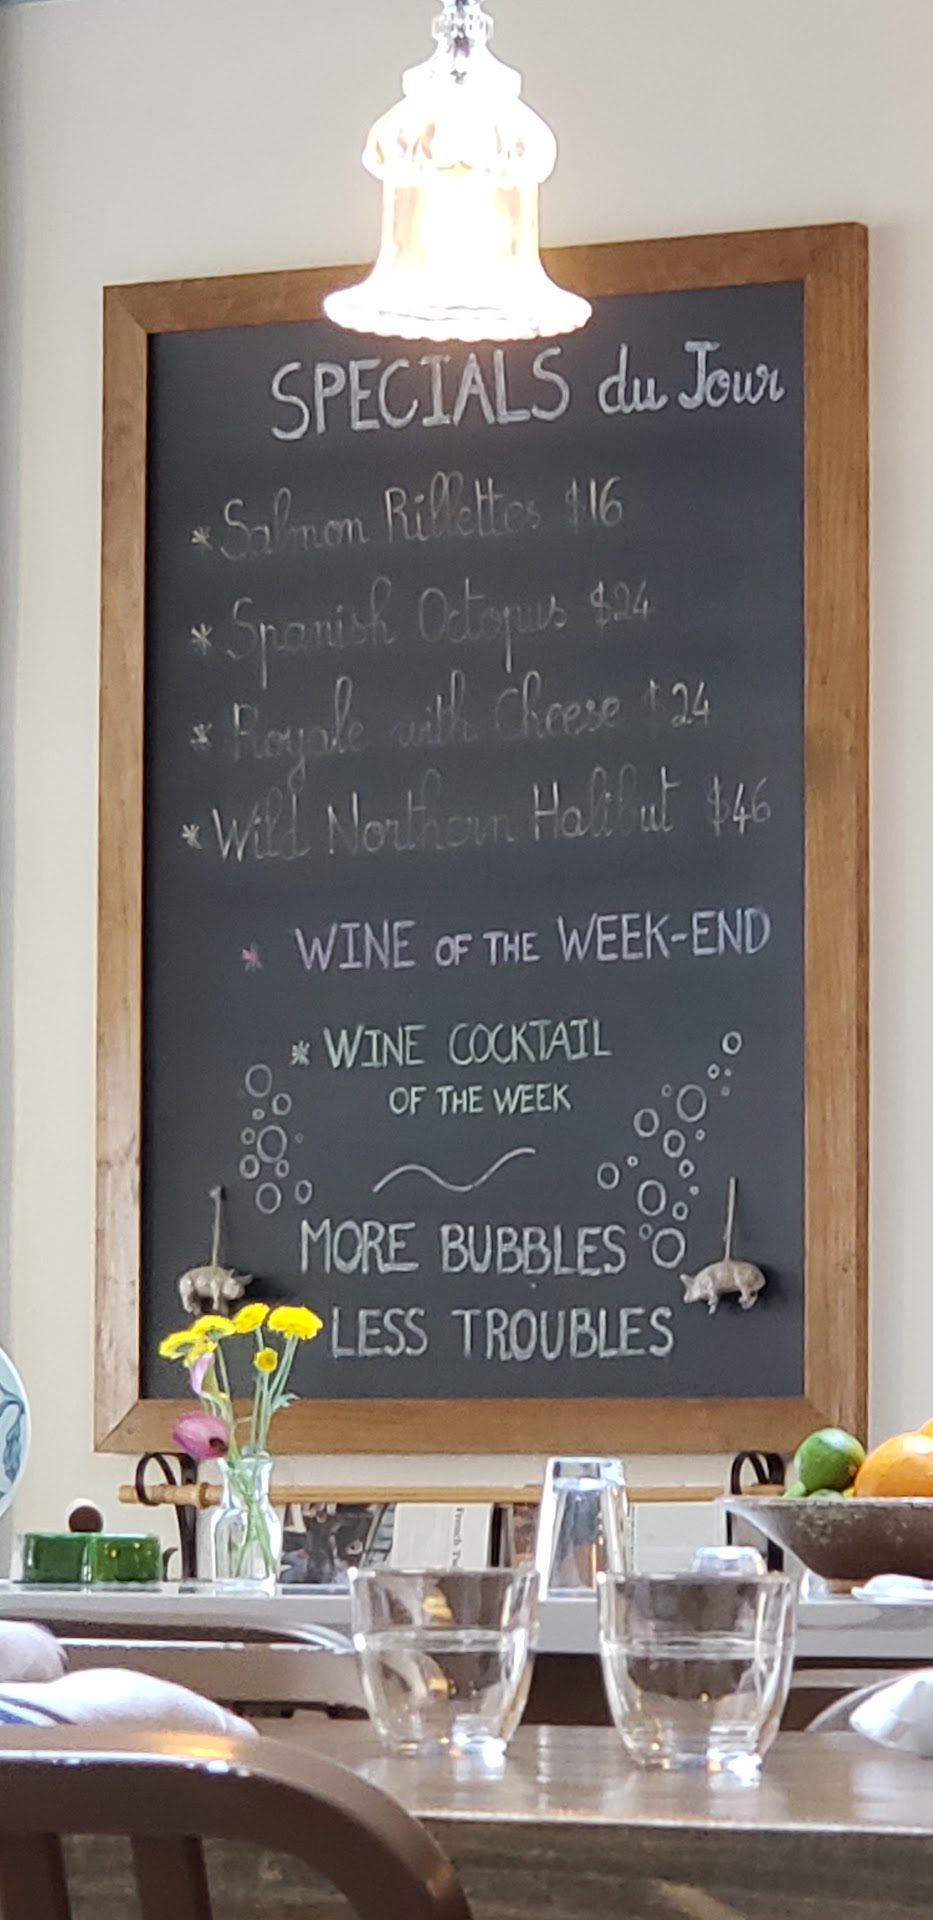 SPECIALS du Jour
* Salmon Rillettes $16
* Spanish Octopus $24
* Royale with Cheese $24
* Wild Northern Halibut $46
* WINE OF THE WEEK-END
* WINE COCKTAIL
OF THE WEEK
MORE BUBBLES
LESS TROUBLES